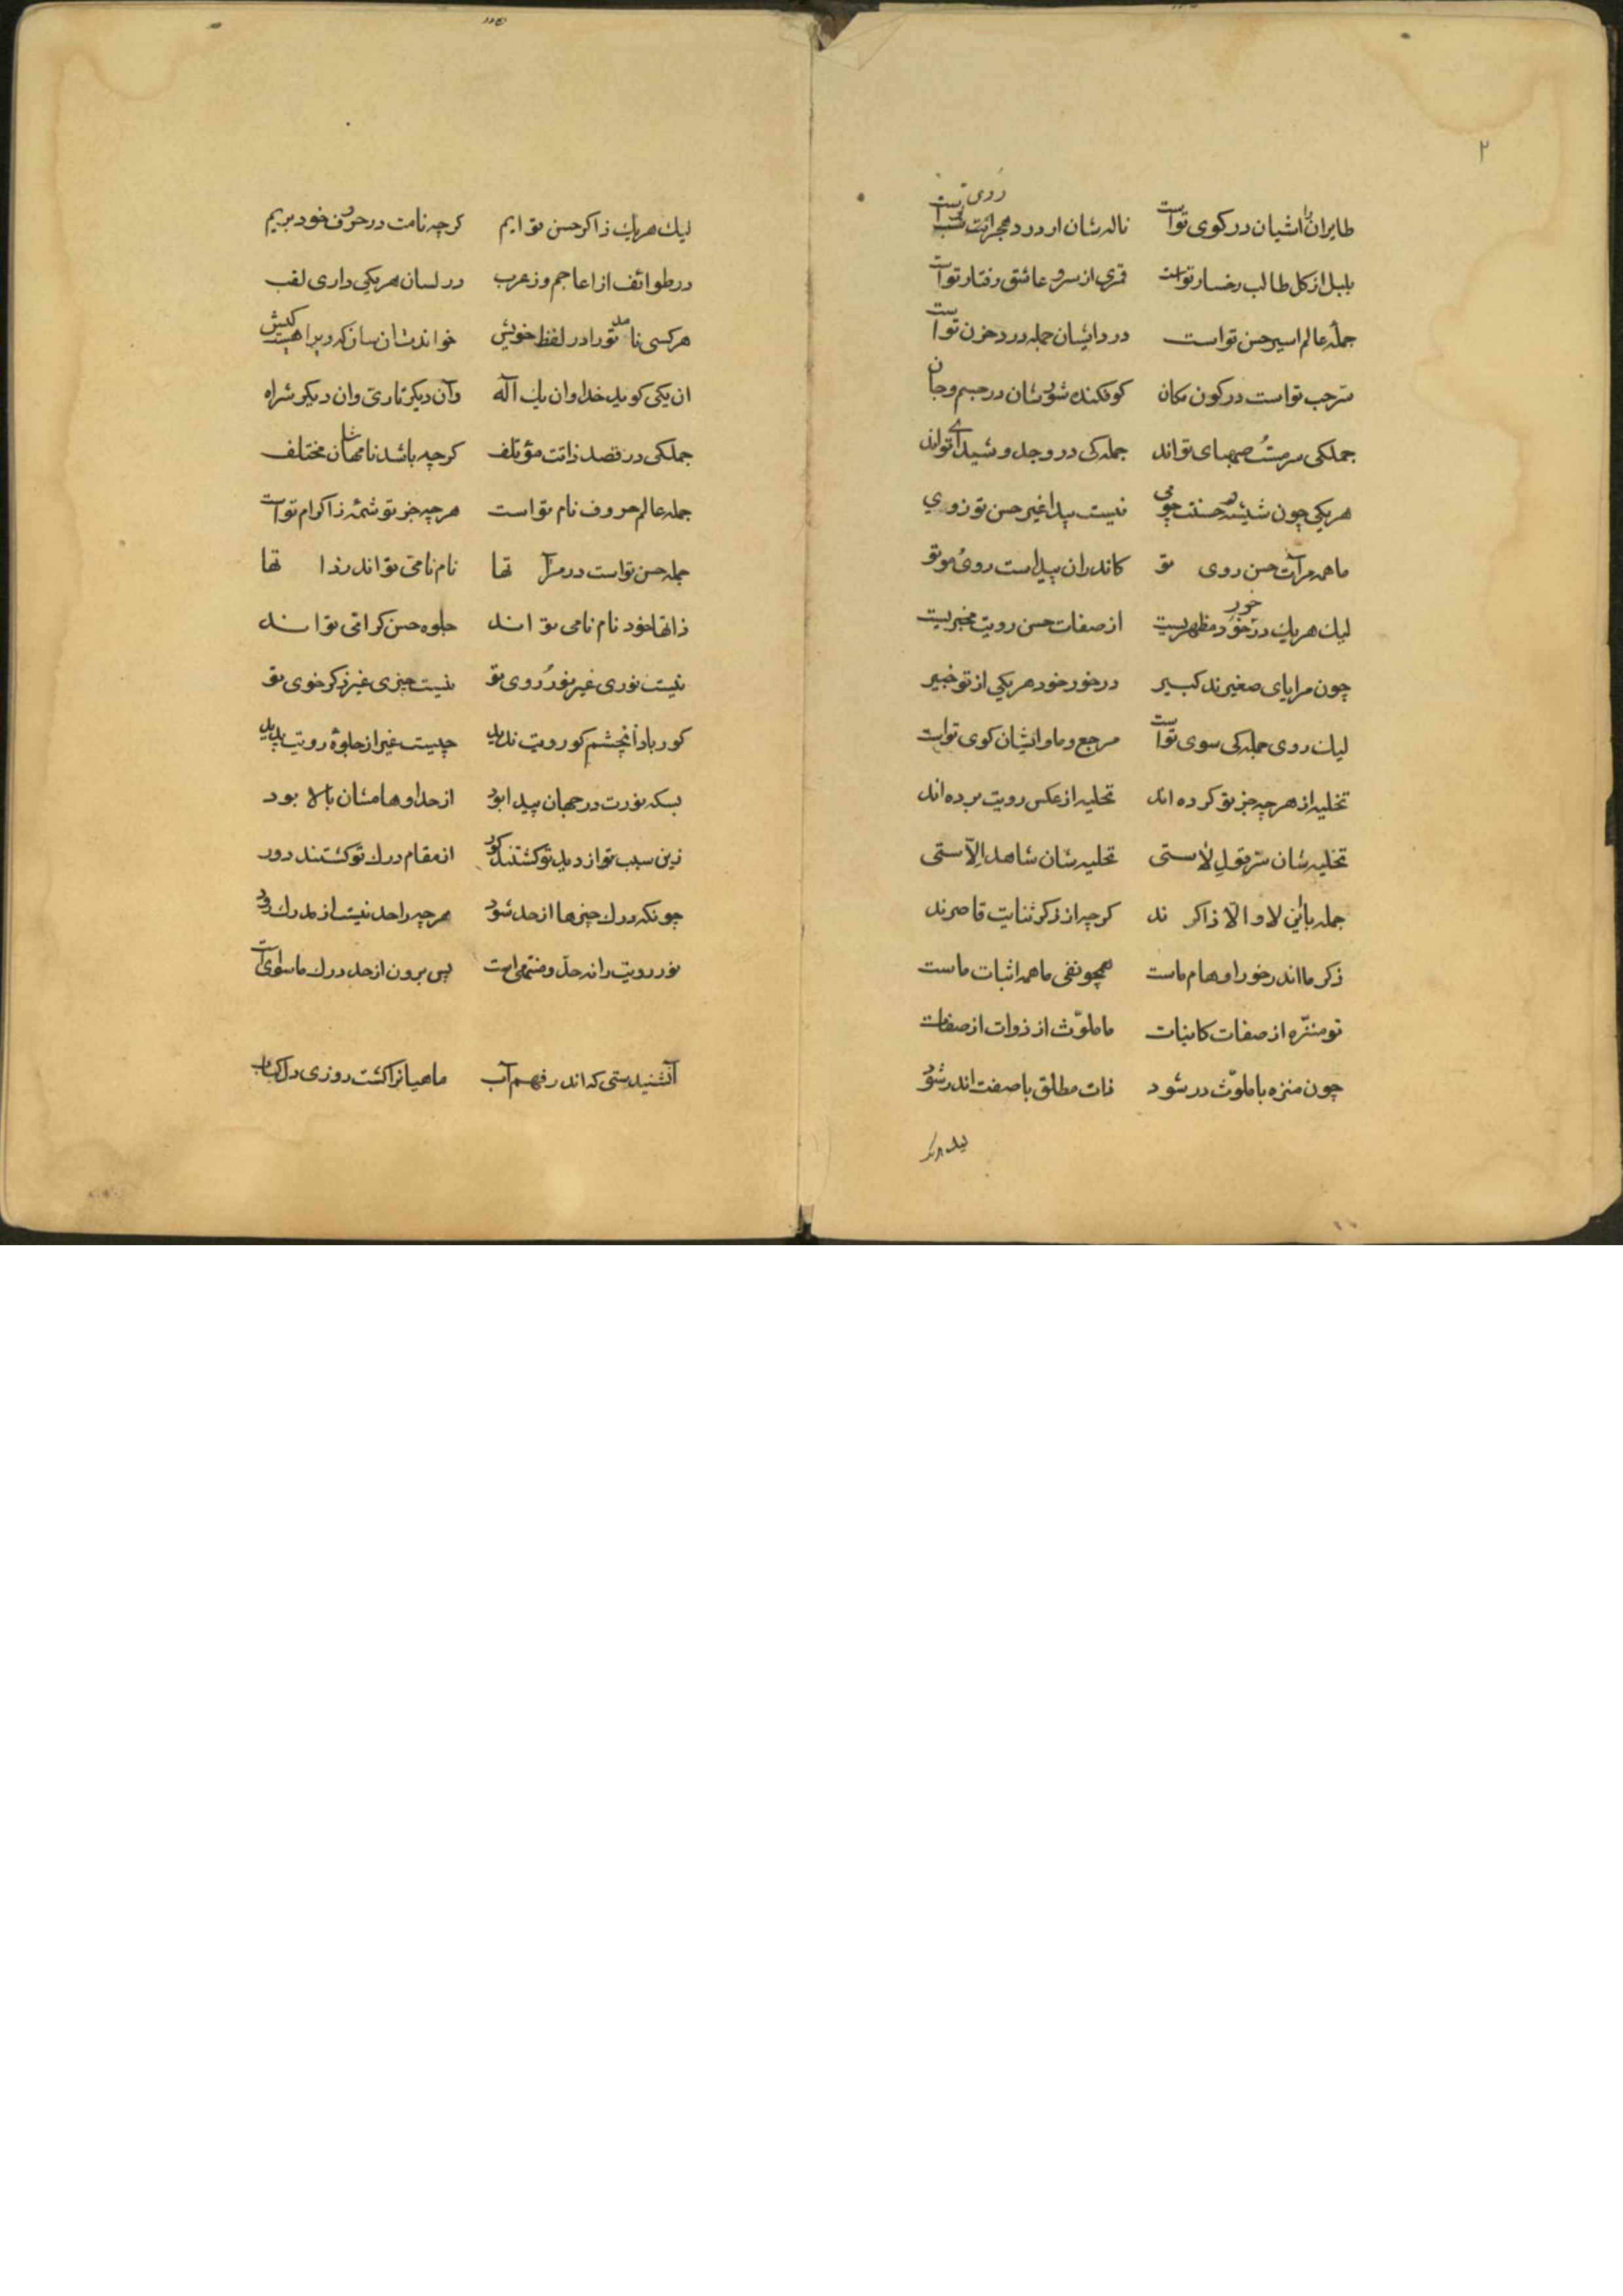 ۲
طایران را اشیان در کوی تو است نالهشان از درد هجرانت
روی تست
بلبل از کل طالب رخسار تو است قمری از سرو عاشق رفتار تو است
جملهٔ عالم اسیر حسن تو است در دل ایشان جمله درد حزن تو است
سرّ حب تو است در کون مکان کو فکنده شورشان در جسم و جان
جملکی سرمست صهبای تو اند جملهکی در وجد و شیدای تواند
هریکی چون شیشه حسنت چو می نیست پیدا غیر حسن تو ز وی
ما همه مرآت حسن روی تو کاندران پیداست روی و موی تو
لیك هریك در خور خود مظهریست از صفات حسن رویت مخبریست
چون مرایای صغیرند کبیر در خور خود هریکی از تو خبیر
لیك روی جملهکی سوی تو است مرجع و ماوایشان کوی تو است
تخلیه از هرچه جز تو کرده اند تحلیه از عکس رویت برده اند
تخلیهشان سرّ قول لاستی تحلیهشان شاهد الّاستی
جمله باین لا و الّا ذاکر ند کرچه از ذکر ثنایت قاصرند
ذکر ما اندر خور اوهام ماست همچو نفی ما همه اثبات ماست
تو منزّه از صفات کاینات ما ملوّث از ذوات از صفات
چون منزه با ملوّث در شود ذات مطلق با صفت اندر شود
لیك هریك ذاکر حسن تو ایم کرچه نامت در حروف خود بریم
در طوائف از اعاجم وز عرب در لسان هریکی داری لقب
هرکسی نامد تو را در لفظ خویش خواندشان سان که و برا کیش
ان یکی کوید خدا وان یك آله وآن دیکر تاری وان دیکر شراه
جملکی در قصد ذاتت مؤتلف کرچه باشد نامهاشان مختلف
جمله عالم حروف نام تو است هرچه جز تو شمهٔ ز اکرام تو است
جمله حسن تو است در مرآ تها نام نامی تو اند رذا تها
ذاتها خود نام نامی تو اند جلوه حسن کرامی تو اند
نیست نوری غیر نور روی تو نیست چیزی غیر ذکر خوی تو
کور باد آنچشم کو رویت ندید چیست غیر از جلوهٔ رویت پدید
بسکه نورت در جهان پیدا بود از حد اوهامشان بالا بود
زین سبب تو از دید تو کشتند کور از مقام درك تو کشتند دور
چونکه درك چیزها از حد شود هرچه را حد نیست از مدرك رود
نور رویت را نه حدّ و منتهی است پس برون از حد درك ماسوی است
آنشنیدستی که اندر فهم آب ماهیانرا کشت روزی دل کباب